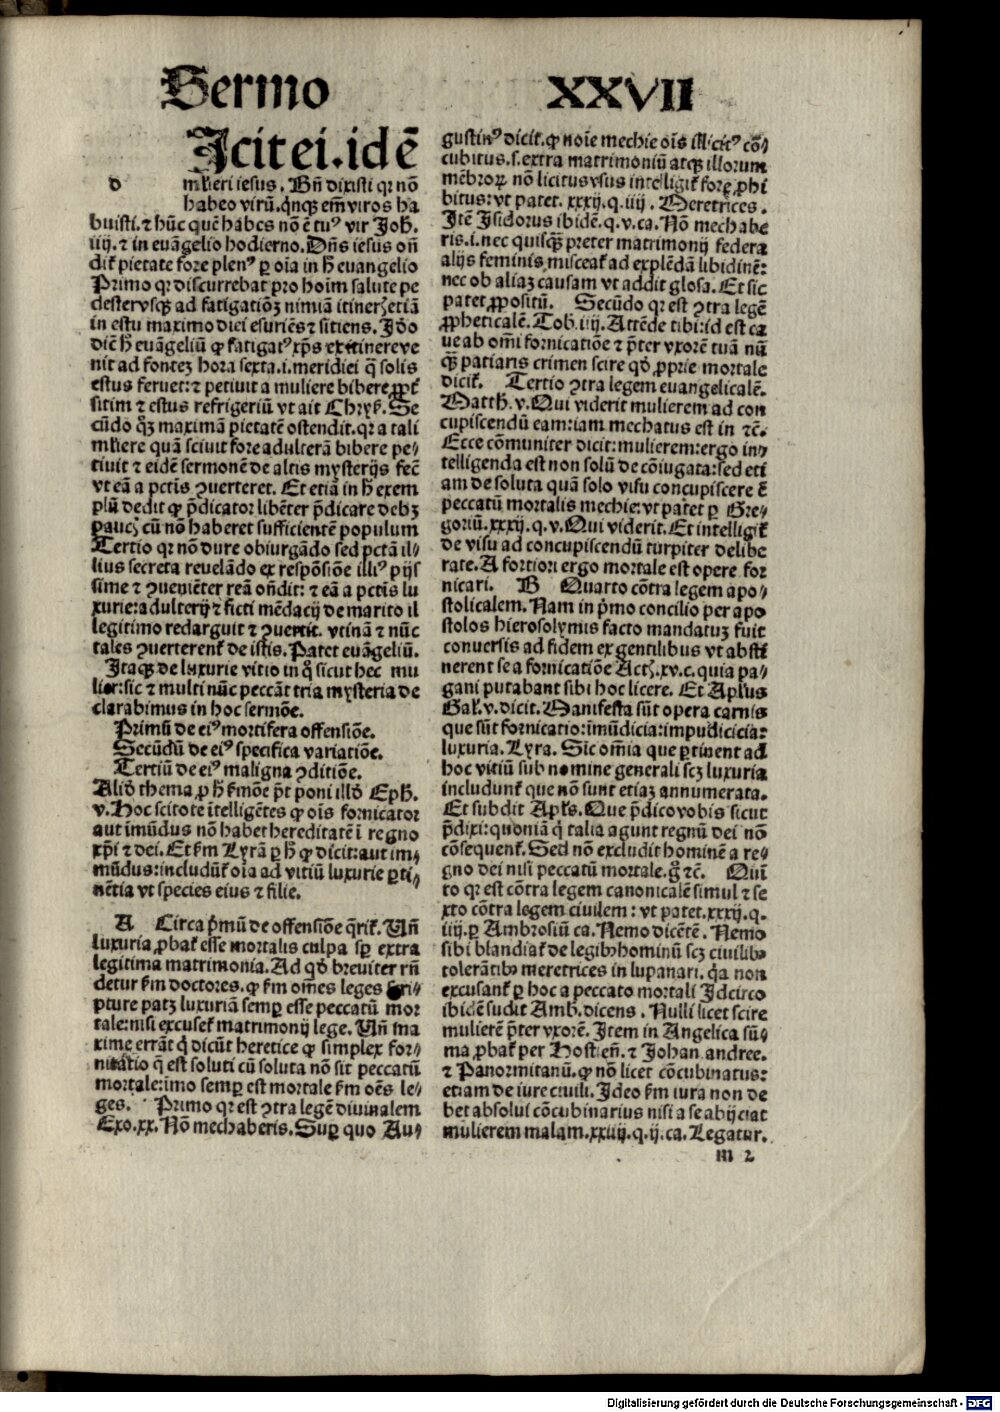 Sermo XXVII
Icit ei. idē
d mlieri iesus. Bn̄ dixisti qr nō
habeo virū. qnqꝫ em̄ viros ha
buisti. ⁊ hūc quē habes nō ē tuꝰ vir Joh.
iiij. ⁊ in euāgelio hodierno. Dn̄s iesus on̄
dit̄ pietate fore plenꝰ ꝑ oīa in h̄ euangelio
Primo qr discurrebat pro hoim salute pe
destervsqꝫ ad fatigatiōꝫ nimiā itinerꝫ etiā
in estu maximo diei esuriēs ⁊ sitiens. Jdo
diē h̄ euāgeliū ꝙ fatigatꝰ xp̄s ex itinere ve
nit ad fontez hora sexta.i. meridiei q̄ solis
estus feruet: ⁊ petiuit a muliere bibere ꝓpt̄
sitim ⁊ estus refrigeriū vt ait Chryſ. Se
cūdo qꝫ maximā pietatē ostendit. qr a tali
mliere quā sciuit fore adulterā bibere pe⸗
tiuit ⁊ eidē sermonē de altis mysterijs fec̄
vt eā a pctīs ↄuerteret. Et etiā in h̄ exem
plū dedit ꝙ p̄dicator libēter p̄dicare debꝫ
paucꝭ cū nō haberet sufficientē populum
Tertio qr nō dure obiurgādo sed pctā il⸗
lius secreta reuelādo ex respōsiōe illiꝰ pijs
sime ⁊ ↄueniēter reā on̄dit: ⁊ eā a pctīs lu
xurie: adulterij ⁊ ficti mēdacij de marito il
legitimo redarguit ⁊ ↄuertit. vtinā ⁊ nūc
tales ↄuerterent̄ de istis. Patet euāgeliū.
Jtaqꝫ de luxurie vitio in q̊ sicut hec mu
lier: sic ⁊ multi nūc peccāt tria mysteria de
clarabimus in hoc sermōe.
Primū de eiꝰ mortifera offensiōe.
Secūdū de eiꝰ specifica variatiōe.
Tertiū de eiꝰ maligna ↄditiōe.
Aliḋ thema ꝓ h̄ ẜmōe p̄t poni illḋ Eph.
v. Hoc scitote ītelligētes ꝙ oīs fornicator
aut īmūdus nō habet hereditatē ī regno
xp̄i ⁊ dei. Et ẜm Lyrā ꝑ h̄ ꝙ dicit: aut im⸗
mūdus: includūt̄ oīa ad vitiū luxurie ꝑti⸗
nētia vt species eius ⁊ filie.
A Circa p̄mū de offensiōe q̄rit̄. Un̄
luxuria ꝓbat̄ esse mortalis culpa sꝑ extra
legitima matrimonia. Ad qḋ breuiter rn̄
detur ẜm doctores. ꝙ ẜm om̄es leges scri⸗
pture patꝫ luxuriā semꝑ esse peccatū mor
tale: nisi excuset̄ matrimonij lege. Un̄ ma
xime errāt q̇ dicūt heretice ꝙ simplex for⸗
nicatio q̄ est soluti cū soluta nō sit peccatū
mortale: imo semꝑ est mortale ẜm oēs le⸗
ges. Primo qr est ↄtra legē diuinalem
Exo. xx. Nō mechaberis. Suꝑ quo Au⸗
gustinꝰ dicit̄. ꝙ noīe mechie oīs illicitꝰ cō⸗
cubitus. s. extra matrimoniū atqꝫ illorum
mēbroꝝ nō licitus vsus intelligit̄ fore ꝓhi
bitus: vt patet. xxxij. q. iiij. Meretrices.
Jtē Jsidorus ibidē. q. v. ca. Nō mechabe
ris. i. nec quisqꝫ preter matrimonij federa
alijs feminis misceat̄ ad explēdā libidinē:
nec ob aliaꝫ causam vt addit glosa. Et sic
patet ꝓpositū. Secūdo qr est ↄtra legē
ꝓpheticalē. Tob. iiij. Attēde tibi: id est ca
ue ab om̄i fornicatiōe ⁊ p̄ter vxorē tuā nū
qꝫ patiaris crimen scire qḋ ꝓprie mortale
dicit̄. Tertio ↄtra legem euangelicalē.
Matth. v. Qui viderit mulierem ad con
cupiscendū eam: iam mechatus est in ⁊c̄.
Ecce cōmuniter dicit: mulierem: ergo in⸗
telligenda est non solū de cōiugata: sed eti
am de soluta quā solo visu concupiscere ē
peccatū mortalis mechie: vt patet ꝑ Gre⸗
goriū. xxxij. q. v. Qui viderit. Et intelligit̄
de visu ad concupiscendū turpiter delibe
rate. A fortiori ergo mortale est opere for
nicari. B Quarto cōtra legem apo⸗
stolicalem. Nam in p̄mo concilio per apo
stolos hierosolymis facto mandatuꝫ fuit
conuersis ad fidem ex gentilibus vt absti
nerent se a fornicatiōe Actꝭ. xv. c. quia pa⸗
gani putabant sibi hoc licere. Et Apl'us
Gal. v. dicit. Manifesta sūt opera carnis
que sūt fornicatio: īmūdicia: impudicicia:
luxuria. Lyra. Sic om̄ia que ꝑtinent ad
hoc vitiū sub nomine generali scꝫ luxuria
includunt̄ que nō sunt etiaꝫ annumerata.
Et subdit Apl's. Que p̄dico vobis sicut
p̄dixi: quoniā q̇ talia agunt regnū dei nō
cōsequent̄. Sed non excludit hominē a re⸗
gno dei nisi peccatū mortale. g̊ ⁊c̄. Quin
to qr est cōtra legem canonicalē simul ⁊ se
xto cōtra legem ciuilem: vt patet. xxxij. q.
iiij. ꝑ Ambrosiū ca. Nemo dicētē. Nemo
sibi blandiat̄ de legibꝰ hominū scꝫ ciuilibꝰ
tolerātibꝰ meretrices in lupanari. qa non
excusant̄ ꝑ hoc a peccato mortali Jdcirco
ibidē sudit Amb. dicens. Nulli licet scire
mulierē p̄ter vxorē. Jtem in Angelica sū⸗
ma ꝓbat̄ per Hostien̄. ⁊ Johan. andree.
⁊ Panormitanū. ꝙ nō licet cōcubinatus:
etiam de iure ciuili. Jdeo ẜm iura non de
bet absolui cōcubinarius nisi a se abijciat
mulierem malam. xxiiij. q. ij. ca. Legatur.
m 2
Digitalisierung gefördert durch die Deutsche Forschungsgemeinschaft - DFG